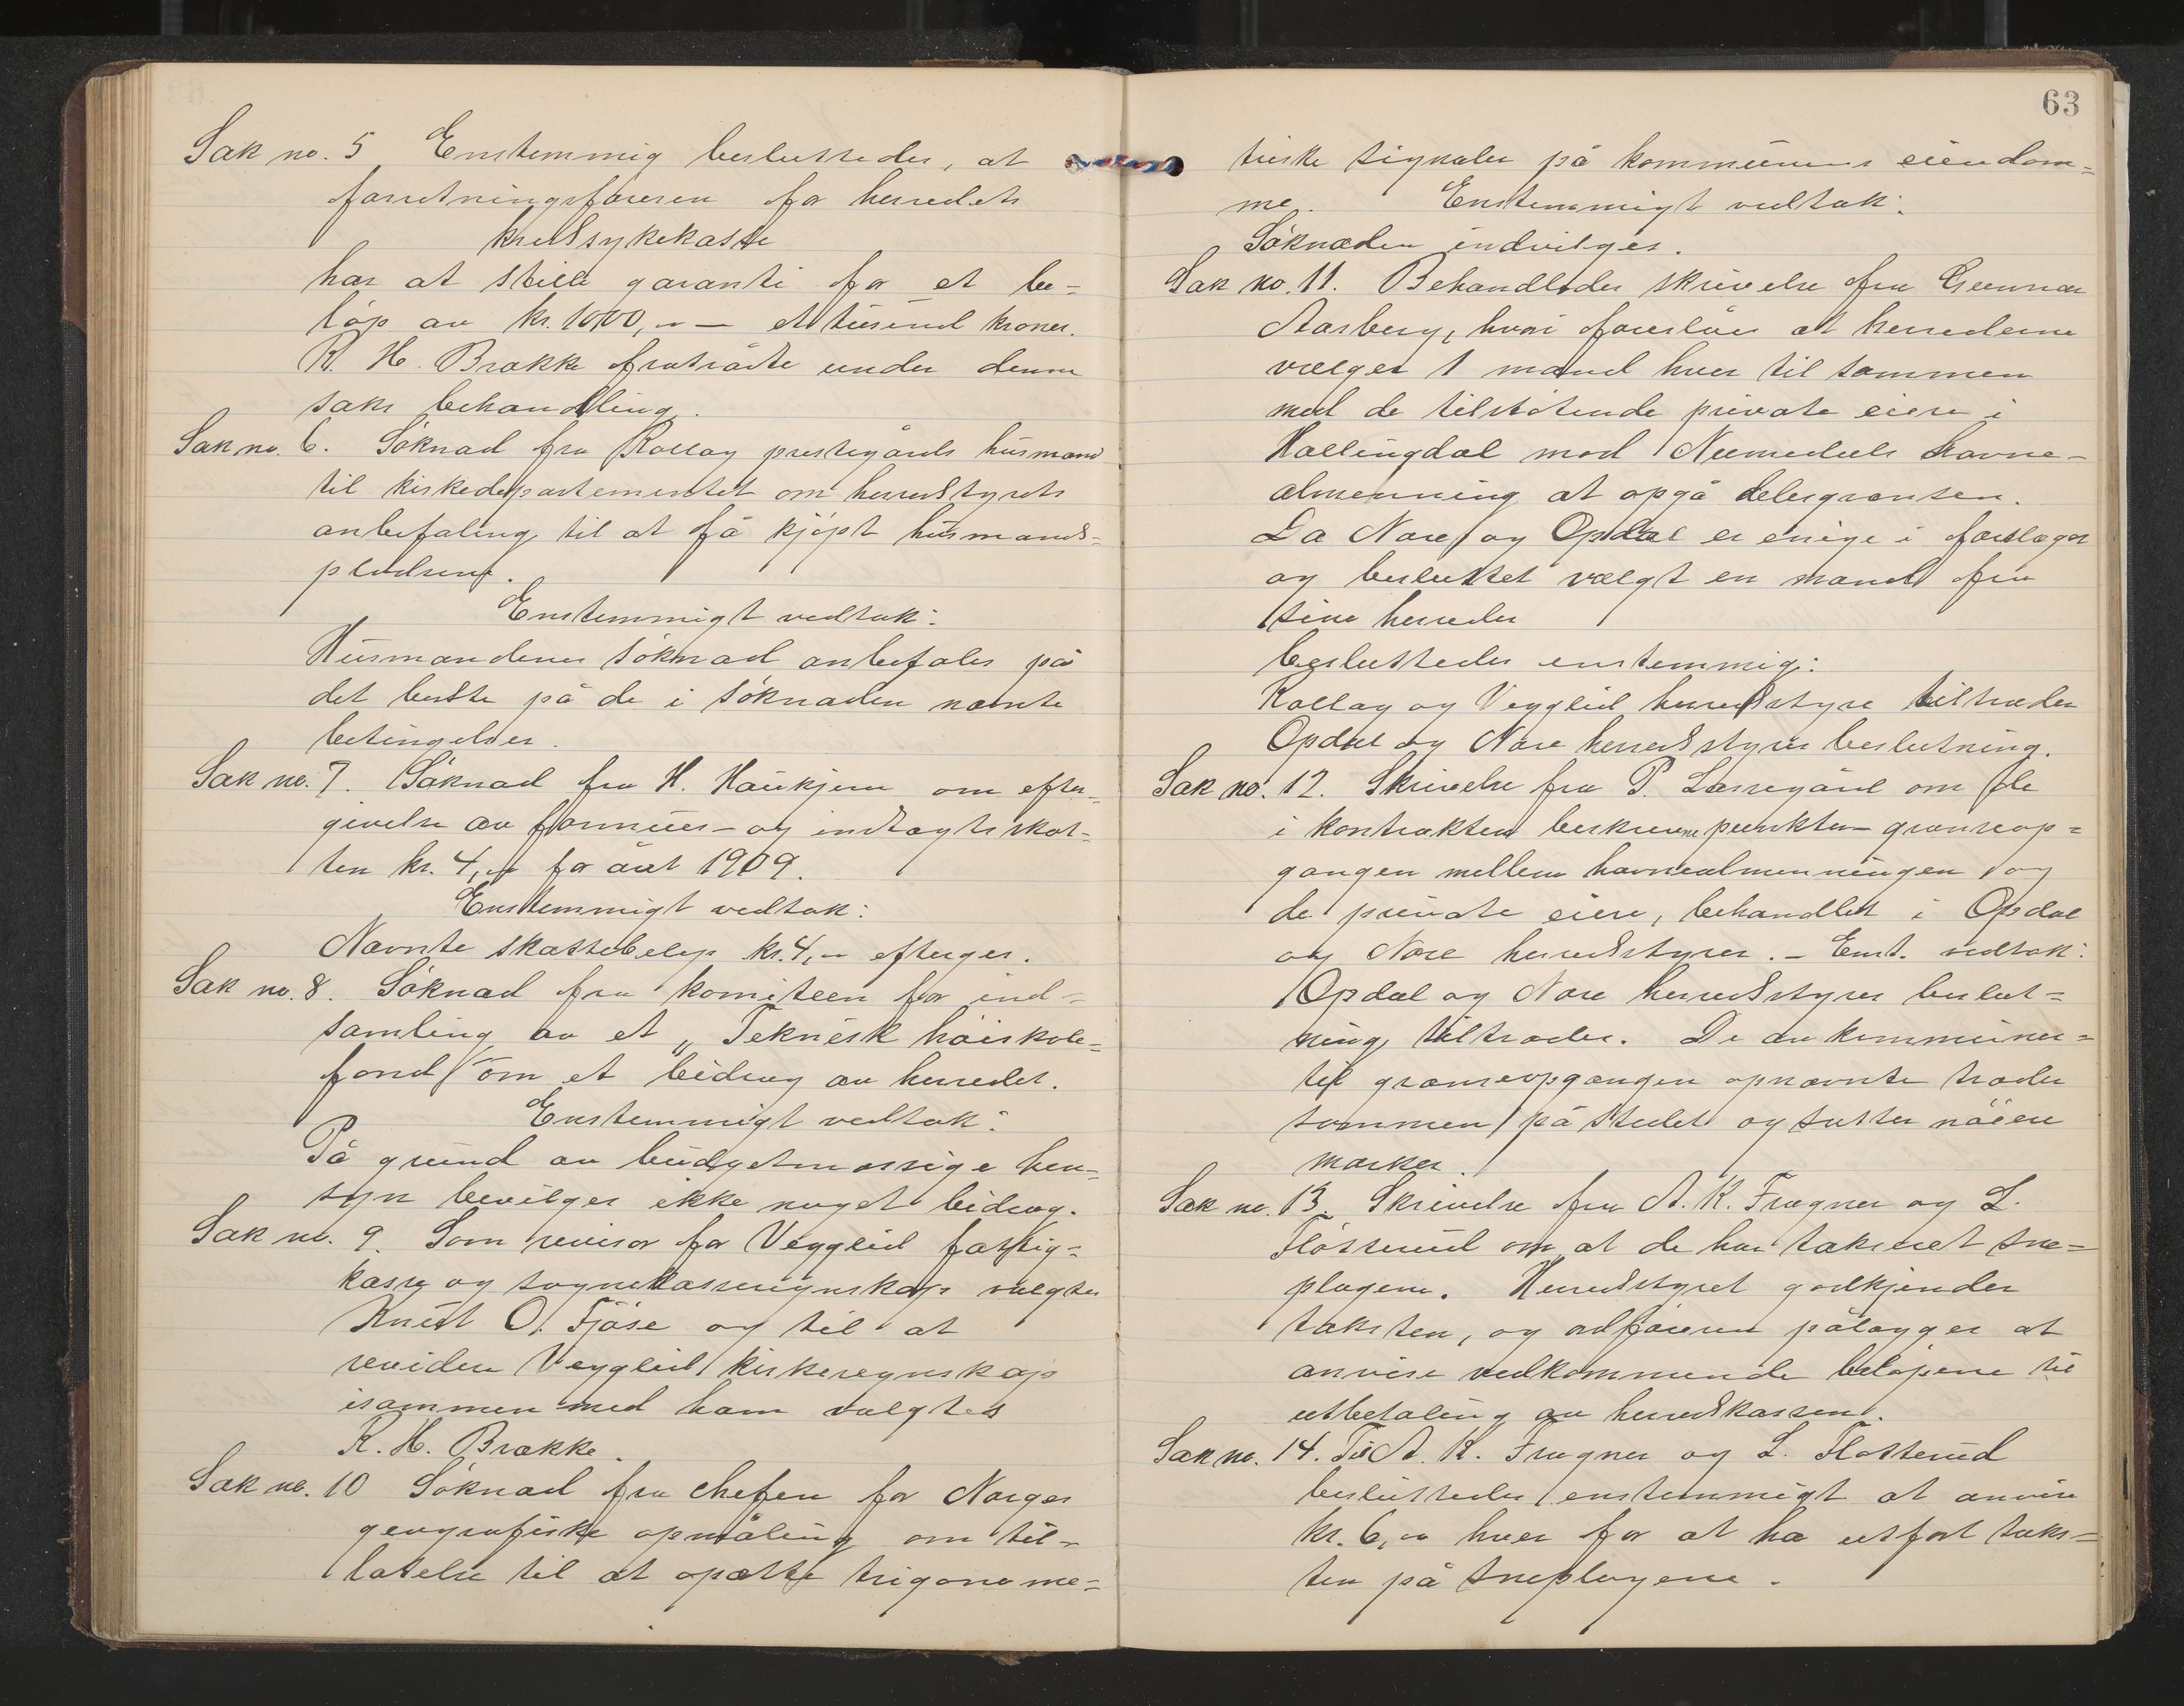 Sak no. 5 Enstemmig besluttedes, at
forretningsføreren for herredets
kredssykekasse
har at stille garanti for et be=
løp av kr. 1000,00 — et tusend kroner.
K. H. Brække fratrådte under denne
saks behandling.
Sak no. 6. Søknad fra Rollag prestegårds husmænd
til kirkedepartementet om herredstyrets
anbefaling til at få kjøpt husmands=
pladsene.
Enstemmigt vedtak:
Husmændenes søknad anbefales på
det beste på de i søknaden nævnte
betingelser.
Sak no. 7. Søknad fra H. Haukjem om efter=
givelse av formues- og indtægtsskat=
ten kr. 4,00 for året 1909.
Enstemmigt vedtak:
Nævnte skattebeløp kr. 4,00 efterges.
Sak no. 8. Søknad fra komiteen for ind=
samling av et „Teknisk høiskole=
fond" om et bidrag av herredet.
Enstemmigt vedtak:
På grund av budgetmæssige hen=
syn bevilges ikke noget bidrag.
Sak no. 9. Som revisor for Veggli fattig=
kasse og sognekasseregnskap valgtes
Knut O. Fjøse og til at
revidere Vegglid kirkeregnskap
isammen med ham valgtes
K. H. Brække.
Sak no. 10 Søknad fra chefen for Norges
geografiske opmåling om til=
latelse til at opsætte trigonome=
63
triske signaler på kommunens eiendom=
me. Enstemmigt vedtak:
Søknaden indvilges.
Sak no. 11. Behandledes skrivelse fra Gunnar
Aasberg, hvori foreslåes at herrederne
vælger 1 mand hver til sammen
med de tilstøtende private eiere i
Hallingdal mod Numedals havne-
almenning at opgå delesgrænsen.
Da Nore og Opdal er enige i forslaget
og besluttet vælgt en mand fra
sine herreder
besluttedes enstemmig:
Rollag og Vegglid herredstyre tiltræder
Opdal og Nore herredstyres beslutning.
Sak no. 12. Skrivelse fra P. Lassegård om de
i kontrakten beskrevne punkter- grænseop=
gangen mellem havnealmenningen og
de private eiere, behandlet i Opdal
og Nore herredstyrer. – Enst. vedtak:
Opdal og Nore herredstyres beslut=
ning tiltrædes. De av kommuner=
til grænseopgangen opnævnte træder
sammen på stedet og sætter nøiere
mærker.
Sak no. 13. Skrivelse fra A. K. Fragner og L.
Flåtterud om at de har takseret sne=
plogene. Herredstyret godkjender
taksten, og ordføreren pålægges at
anvise vedkommende beløpene til
utbetaling av herredskassen.
Sak no. 14. Til A. K. Fragner og L. Flotterud
besluttedes enstemmigt at anvise
kr. 6,00 hver for at ha utført taks=
ten på sneplogene.